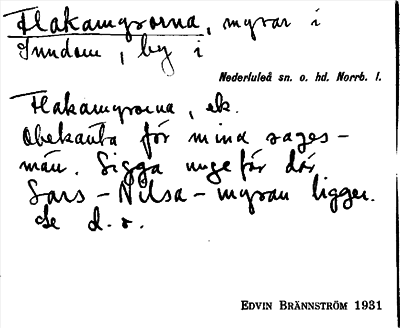 Flakamyrorna, myrar i
Inndom, by i
Nederluleå sn. o. hd. Norrb. l.
Flakamyrorna, ek.
Obekanta för mina sages-
män. Ligga ungefär där
Lars-Nilsa-myran ligger.
Se d. o.
EDVIN BRÄNNSTRÖM 1931